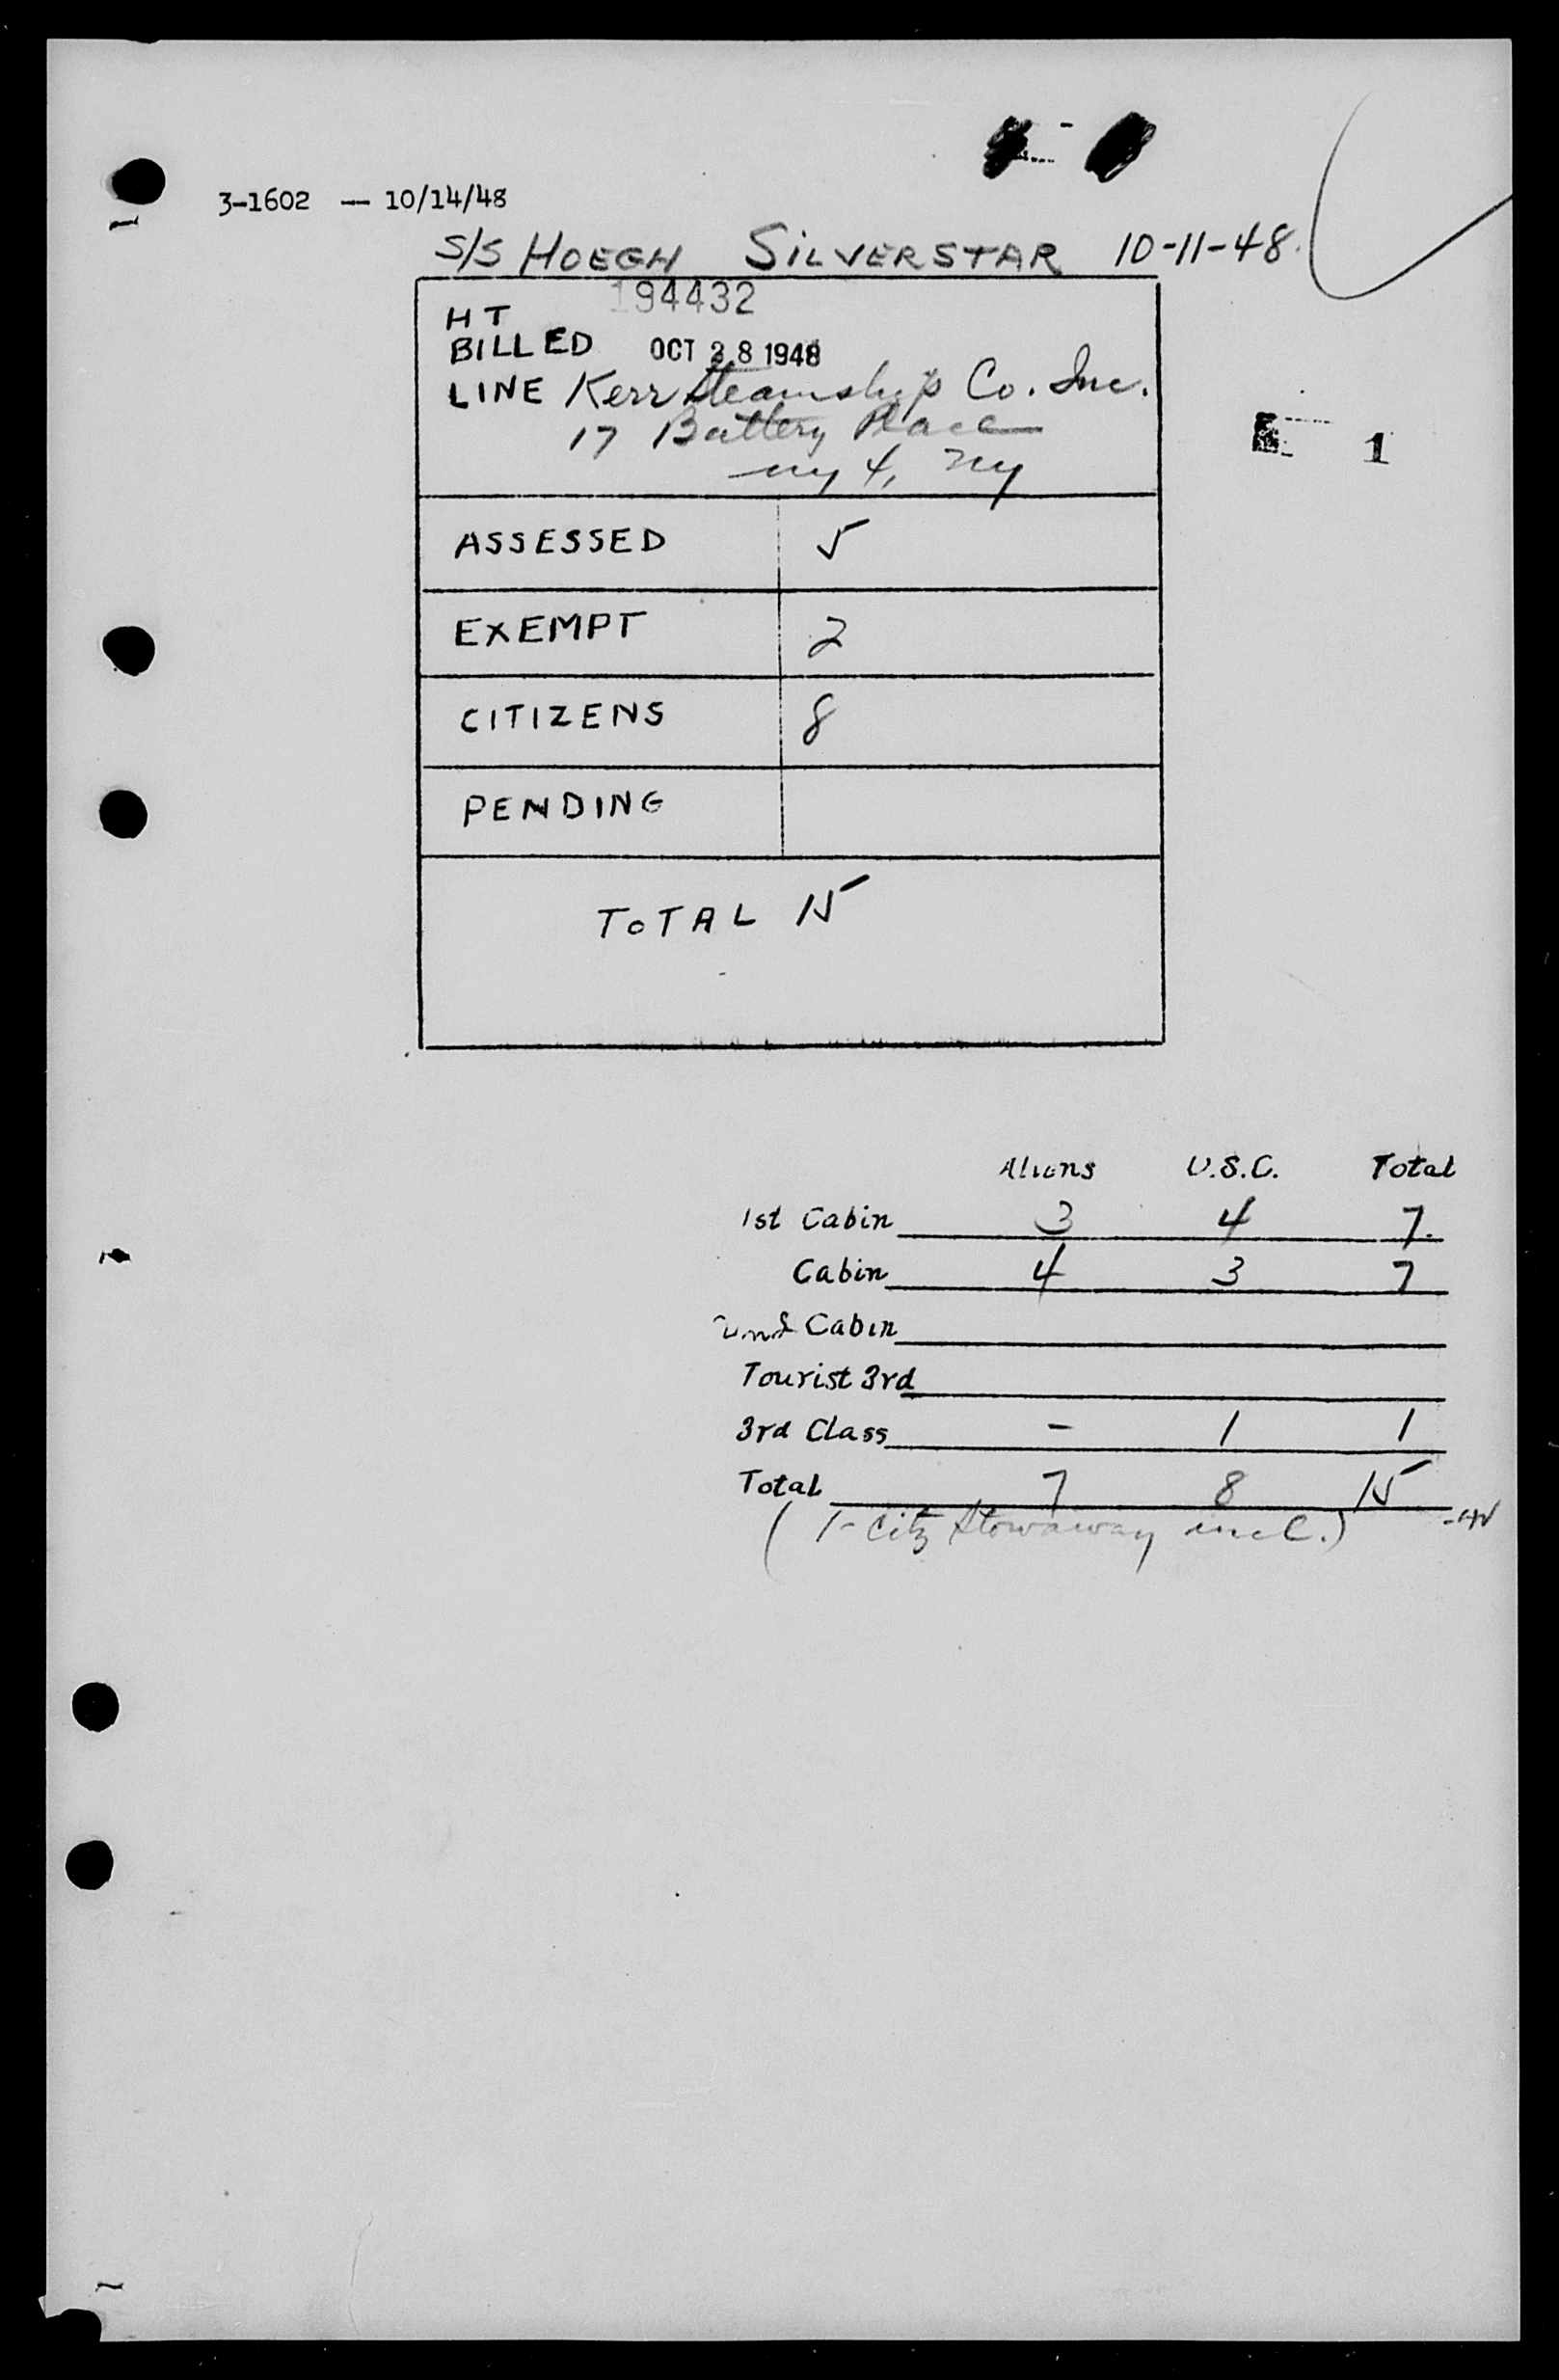 3-1602 — 10/14/48
S/S HOEGH SILVERSTAR 10-11-48.
HT 194432
BILLED OCT 28 1948
LINE Kerr Steamship Co. Inc.
17 Battery Place
ny 4, ny
1
ASSESSED 5
EXEMPT 2
CITIZENS 8
PENDING
TOTAL 15
Aliens U.S.C. Total
1st Cabin 3 4 7.
Cabin 4 3 7
2nd Cabin
Tourist 3rd
3rd Class - 1 1
Total 7 8 15
(1- Citz Stowaway incl.)